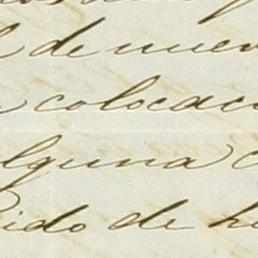 de nuev
colocac
lguna c
ido de h